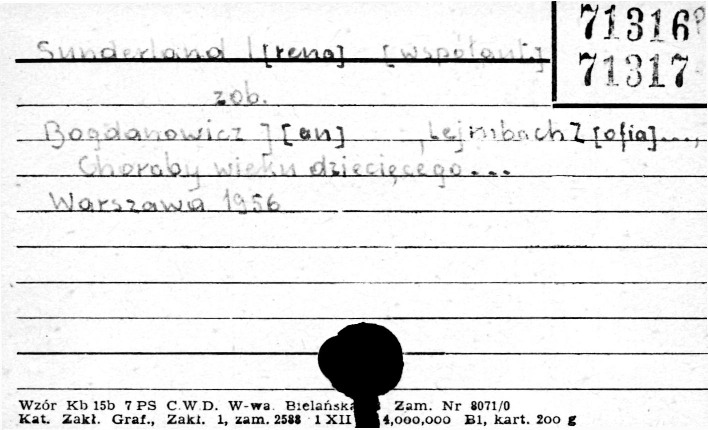 71316
71317
Sunderland I[rena] [współaut.]
zob.
Bogdanowicz J[an], Lejmbach Z[ofia]...,
Choroby wieku dziecięcego...
Warszawa 1956
Wzór Kb 15b 7 PS C.W.D. W-wa. Bielańska Zam. Nr 8071/0
Kat. Zakł. Graf., Zakł. 1, zam. 2588 1 XII 4,000,000 B1, kart. 200 g